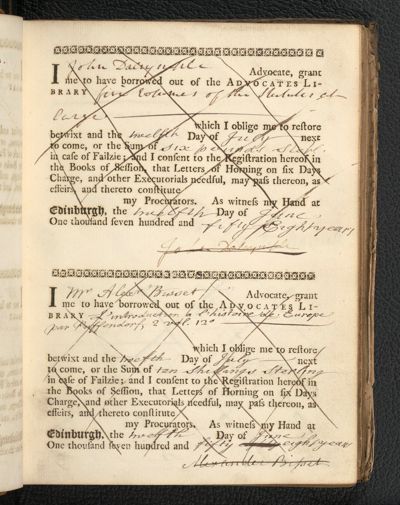 I John Dalrymple Advocate, grant
me to have borrowed out of the ADVOCATES LI-
BRARY five volumes of the Statutes at
Large
which I oblige me to restore
betwixt and the twelfth Day of July next
to come, or the Sum of six pounds Sterl.
in case of Failzie; and I consent to the Registration hereof in
the Books of Session, that Letters of Horning on six Days
Charge, and other Executorials needful, may pass thereon, as
effeirs, and thereto constitute
my Procurators. As witness my Hand at
Edinburgh, the twelfth Day of June
One thousand seven hundred and fifty Eight years
John Dalrymple
I Mr Alexr Bisset Advocate, grant
me to have borrowed out of the ADVOCATES LI-
BRARY L'introduction a l'histoire de Europe
par Puffendorf 2 vol. 12o
which I oblige me to restore
betwixt and the twelfth Day of July next
to come, or the Sum of ten Shillings Sterling
in case of Failzie; and I consent to the Registration hereof in
the Books of Session, that Letters of Horning on six Days
Charge, and other Executorials needful, may pass thereon, as
effeirs, and thereto constitute
my Procurators. As witness my Hand at
Edinburgh, the twelfth Day of June
One thousand seven hundred and fifty eight years
Alexander Bisset